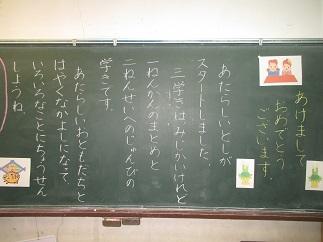 あけまして
おめでとう
ございます。
あたらしいとしが
スタートしました。
三学きはみじかいけれど
一ねんかんのまとめと
二ねんせいへのじゅんびの
学きです。
あたらしいおともだちと
はやくなかよしになって、
いろいろなことにちょうせん
しようね。